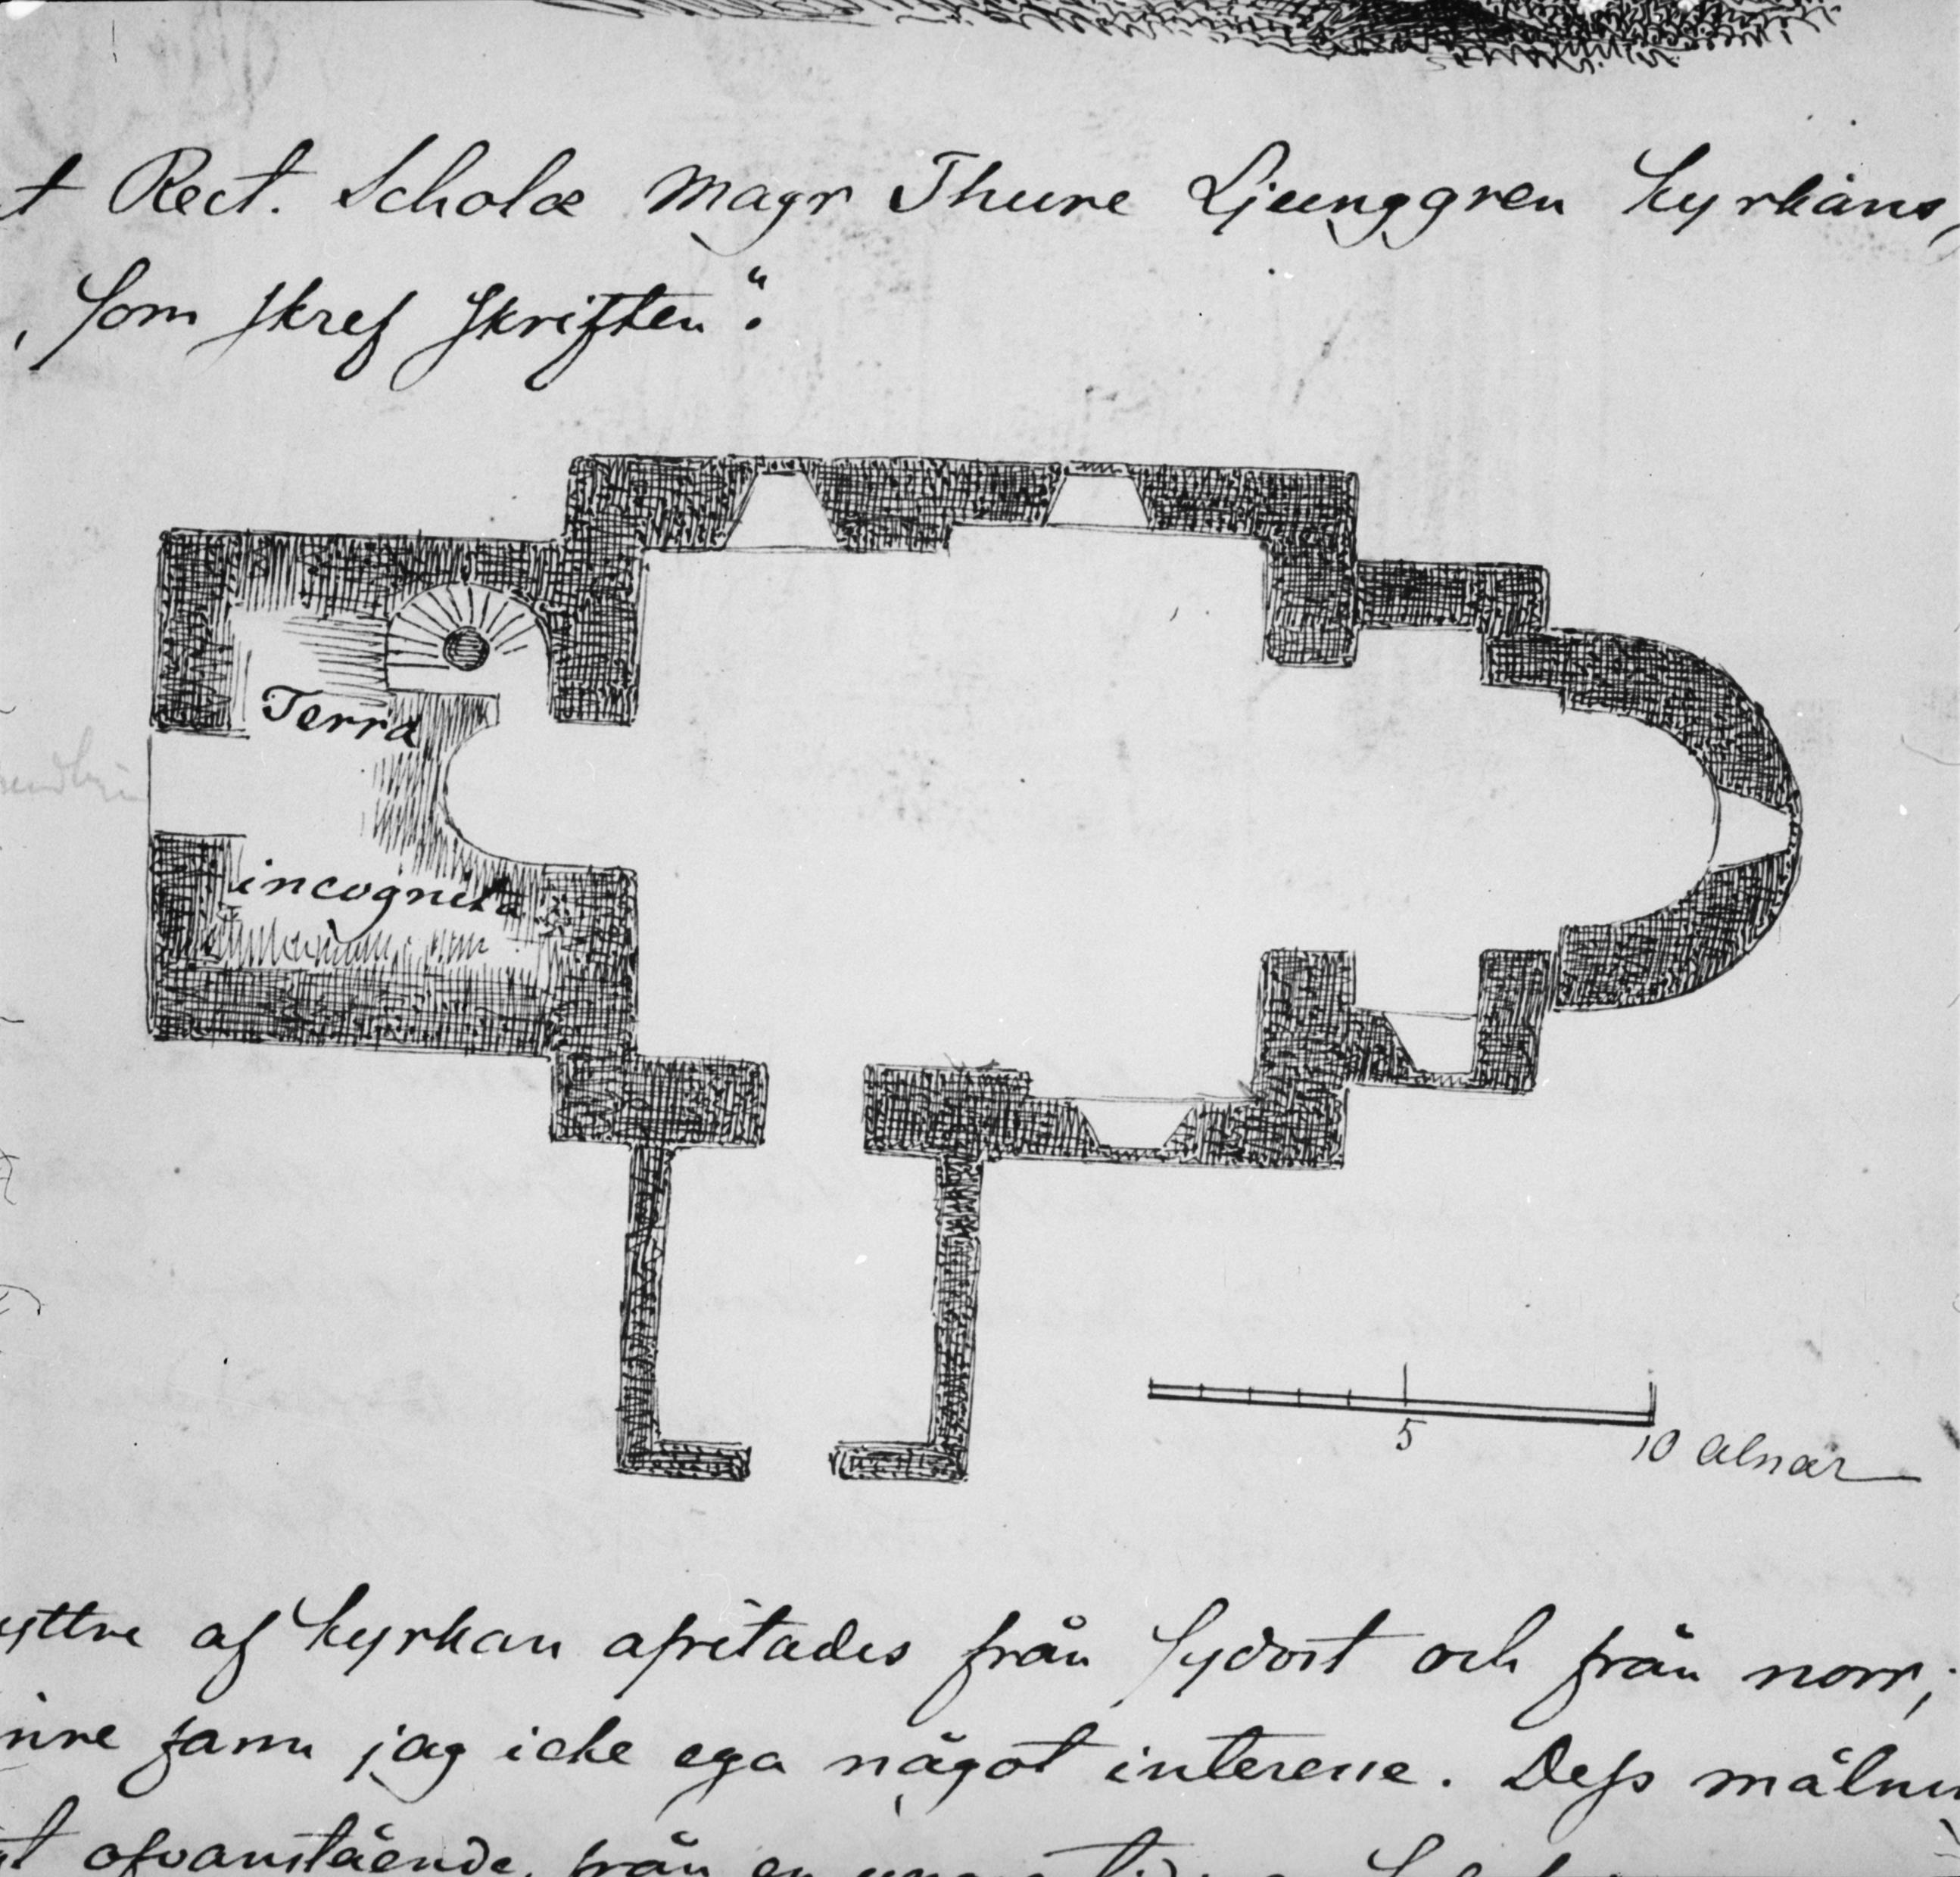 t Rect. Scholæ Magr Thure Ljunggren Kyrkans,
, som skref skriften“.
Terra
incognita
5
10 alnar
yttre af kyrkan afritades från sydost och från norr;
inre fann jag icke ega något interesse. Dess målnin
ofvanstående, från en